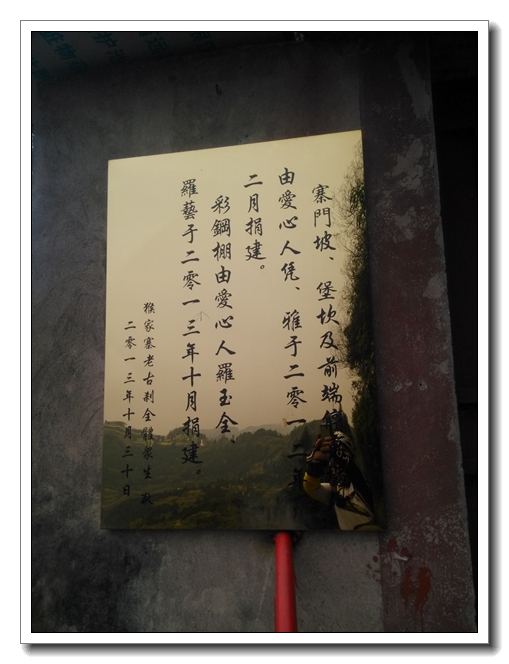 寨門坡、堡坎及前端
由愛心人凭、雅于二零一二年
二月捐建。
彩鋼棚由愛心人羅玉全、
羅藝于二零一三年十月捐建。
猴家寨老古刹全體衆生敬
二零一三年十月三十日